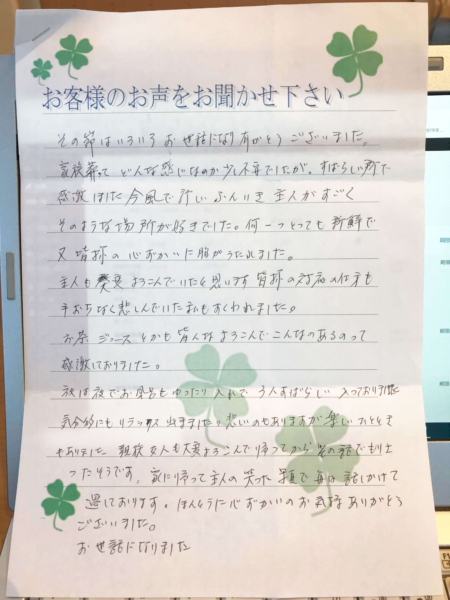 お客様のお声をお聞かせ下さい
その節はいろいろお世話になり有がとうございました。
家族葬って どんな感じなのか少し不安でしたが、すばらしい所で
感激しました 今風で 行い ふんいき 主人がすごく
そのような場所が好きでした。何一つとっても 新鮮で
又皆様の心おかいに胸がうたれました。
主人も 大変 よろこんでいたと思います 皆様の対応の仕方も
手おちなく悲しんでいた私もすくわれました。
お茶 ジュース とかも 皆んな よろこんで こんなのあるのって
感激しておりました。
夜は夜でお風呂もゆったり入れて 3人すばらしい 入っておりました
気分的にもリラックス 出来ました 悲しいのもありますが楽しいひととき
もありました 親族 友人も大変よろこんで帰ってから その話でもり上
ったそうです。家に帰って主人の笑った 顔で 毎日 話しかけて
過しております。ほんとうに心ずかいのお気持 ありがとう
ございました。
お世話になりました